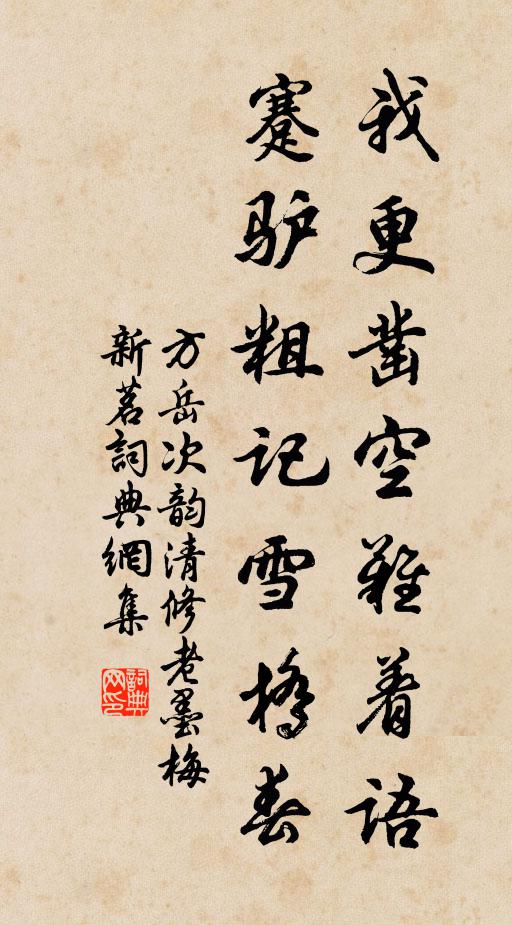 我更凿空难着语
蹇驴粗记雪桥春
方岳次韵清修老墨梅
新茗詞典網集
詞典
网印